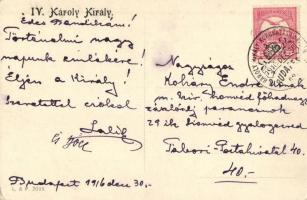 IV. Károly Király.
Édes Bandikám!
Történelmi nagy
napunk emlékére!
Éljen a Király!
Szeretettel csókol
Lalik
és
Budapest 1916 dec 30.-
Nagyságos
Endre úrnak
m. kir. honvéd főhadnagy
zászlóalj parancsnok
29 ik honvéd gyalogezred
Tábori-Postahivatal 40.
40.-